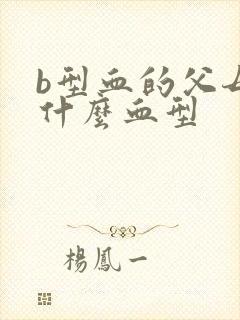 b型血的父母
什麼血型
楊鳳一